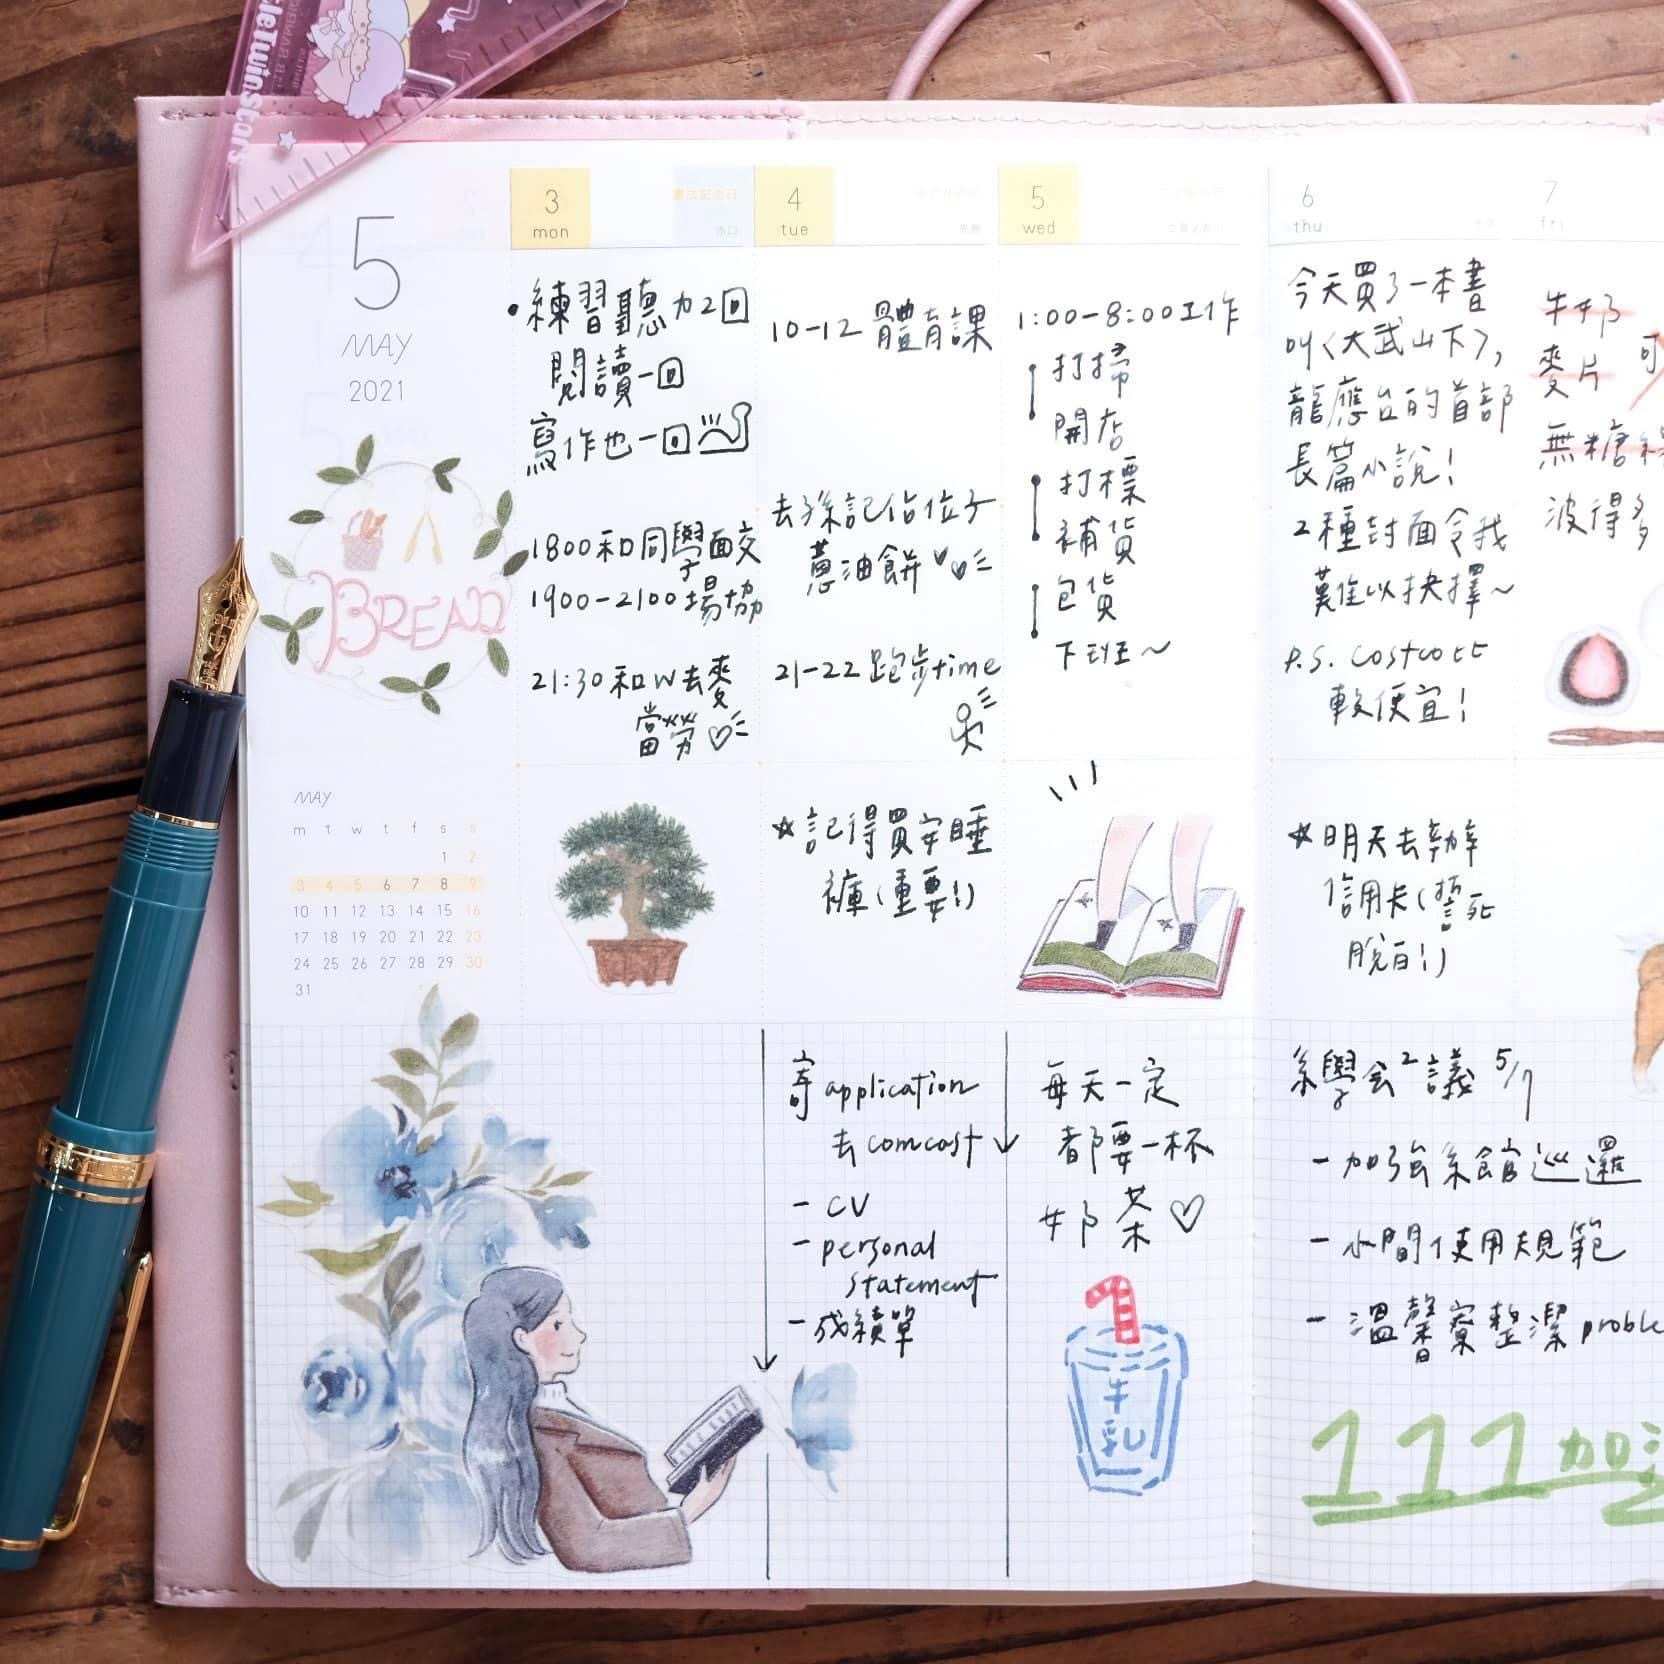 LittleTwinStars
5
MAY
2021
3
mon
憲法記念日
赤口
4
tue
みどりの日
先勝
5
wed
こどもの日
6
thu
7
fri
•練習聽力2回
閱讀一回
寫作也一回
1800和同學面交
1900-2100場協
21:30和W去麥
當勞♡
10-12 體育課
去孫記佔位子
蔥油餅♥♥
21-22 跑步time
1:00-8:00工作
打掃
開店
打標
補貨
包貨
下班~
今天買了一本書
叫〈大武山下〉,
龍應台的首部
長篇小說!
2種封面令我
難以抉擇~
P.S. costcott
較便宜!
牛奶
麥片 可
無糖綠
波得多
BREAD
MAY
m t w t f s s
1 2
3 4 5 6 7 8 9
10 11 12 13 14 15 16
17 18 19 20 21 22 23
24 25 26 27 28 29 30
31
☆記得買安睡
褲(重要!)
☆明天去辦
信用卡(誓死
脫百!)
寄application
去comcast
- CV
- personal
statement
-成績單
每天一定
都要一杯
奶茶♡
牛
乳
系學会議 5/7
-加強系館巡邏
-小間使用規範
-溫馨寮整潔proble
111加油